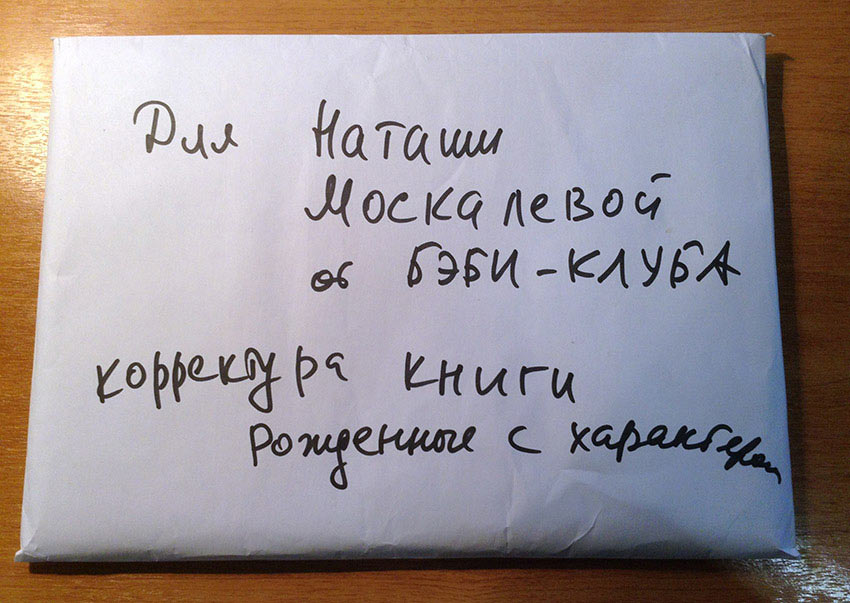 Для Наташи
Москалевой
от БЭБИ-КЛУБА
корректура книги
Рожденные с характером